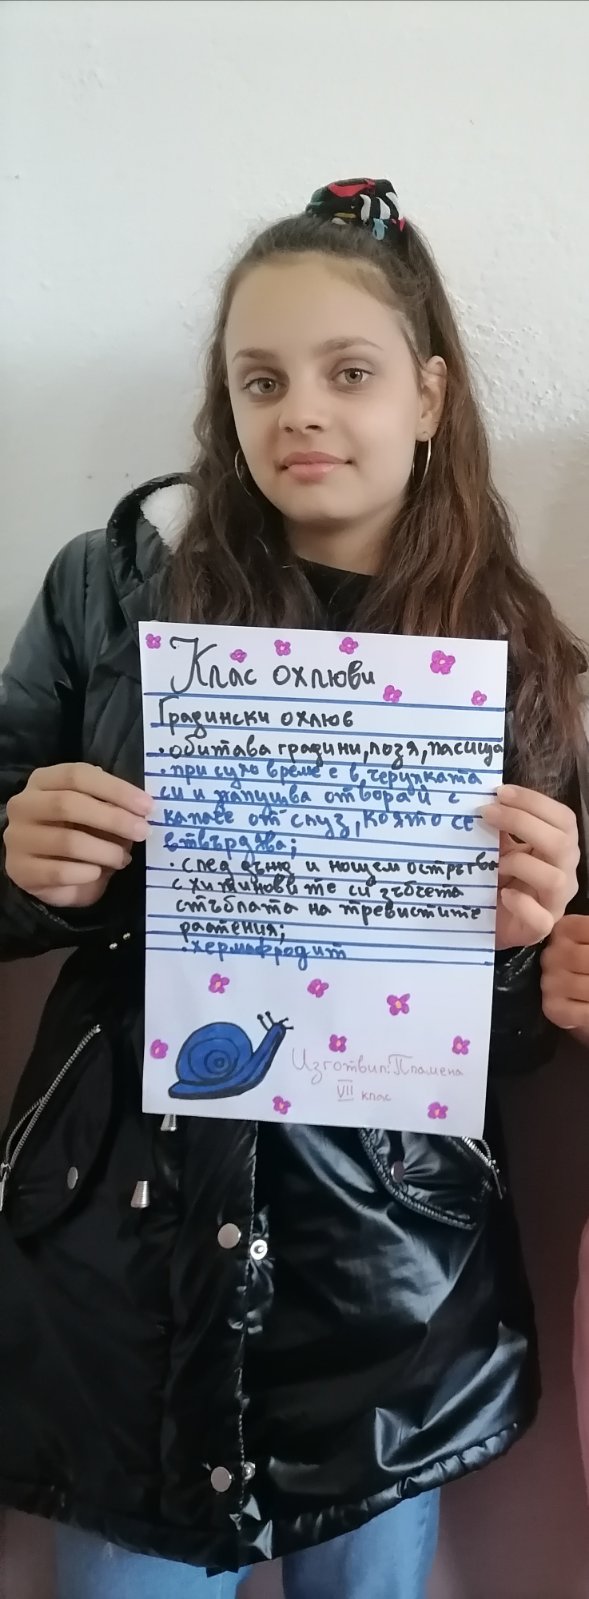 Клас охлюви
Градински охлюв
• обитава градини, лозя, пасища
• при сухо време е в черупката
си и запушва отвора ѝ с
капаче от слуз, която се
втвърдява;
• след дъжд и нощем остъргва
с хитиновите си зъбчета
стъблата на тревистите
растения;
• хермафродит
Изготвил: Пламена
VII клас